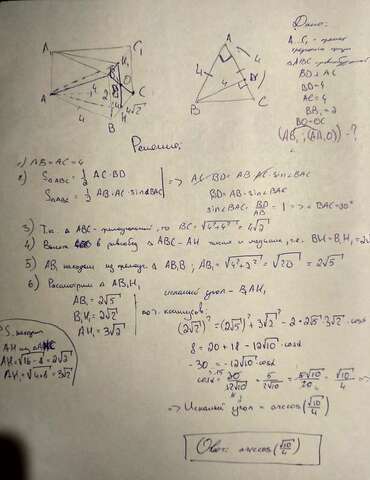 Дано:
A...C₁ - прямая
призма
△ABC - равнобедренный
BD ⊥ AC
BD = 4
AC = 4
BB₁ = 2
BO = OC
(AB₁, (AA₁O)) - ?
A
C₁
B₁
H₁
A
O
C
4
4
2
H
4√2
B
A
4
4
D
B
C
Решение:
1) AB = AC = 4
2) S△ABC = ½ AC·BD
S△ABC = ½ AB·AC·sin∠BAC
=> AC·BD = AB·AC·sin∠BAC
BD = AB·sin∠BAC
sin∠BAC = BD/AB = 1 => ∠BAC = 90°
3) Т.к. △ABC - прямоугольный, то BC = √(4²+4²) = 4√2
4) Высота в равнобед. △ABC - AH также и медиана, т.е. BH = B₁H₁ = 2√2
5) AB₁ находим из прямоуг. △ABB₁; AB₁ = √(4²+2²) = √20 = 2√5
6) Рассмотрим △AB₁H₁
AB₁ = 2√5
B₁H₁ = 2√2
AH₁ = 3√2
искомый угол - B₁AH₁
по т. косинусов:
(2√2)² = (2√5)² + 3√2² - 2·2√5·3√2·cosα
8 = 20 + 18 - 12√10·cosα
-30 = -12√10 cosα
cosα = 30/12√10 = 5/2√10 = 5√10/20 = √10/4 =>
=> Искомый угол = arccos(√10/4)
AH из △AHC
AH = √(16-8) = 2√2
AH₁ = √(4+8) = 3√2
Ответ: arccos(√10/4)